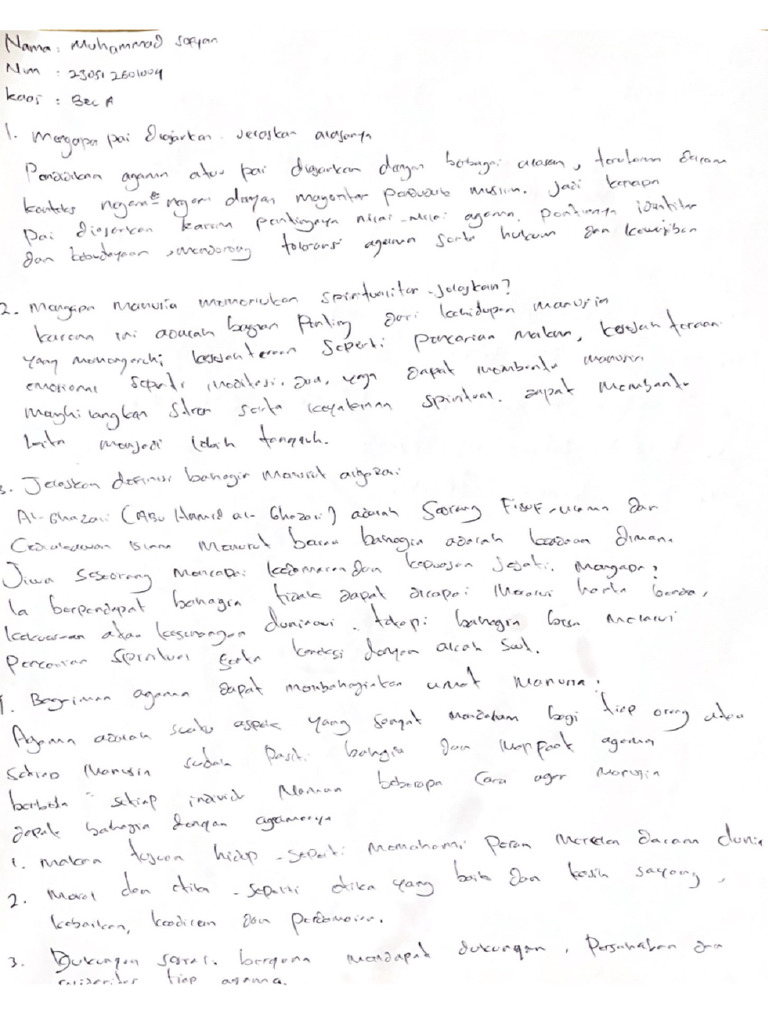 Nama : Muhammad Sofyan
Nim : 230512601004
Kelas : Bec A
1. Mengapa pai diajarkan. Jelaskan alasanya
Pendidikan agama atau pai diajarkan dengan berbagai alasan, terutama dalam
konteks negara - negara dengan mayoritas penduduk muslim. Jadi kenapa
Pai diajarkan karena pentingnya nilai-nilai agama. Pentingnya identitas
dan kebudayaan, mendorong toleransi agama serta hukum dan kewajiban
2. Mengapa manusia memerlukan spiritualitas. Jelaskan?
karena ini adalah bagian Penting dari kehidupan manusia
yang memengaruhi kesejahteraan seperti Pencarian makna, kesejahteraan
emosional seperti meditasi. doa, yoga dapat membantu manusia
menghilangkan stres serta keyakinan spiritual. dapat membantu
kita menjadi lebih tangguh.
3. Jelaskan definisi bahagia menurut algazali
Al-Ghazali (Abu Hamid al-Ghazali) adalah seorang Filsuf-ulama dan
Cendekiawan islam menurut beliau bahagia adalah keadaan dimana
Jiwa seseorang mencapai kedamaian dan kepuasan sejati. Mengapa?
Ia berpendapat bahagia tidak dapat dicapai melalui harta benda,
kekuasaan atau kesenangan duniawi. tetapi bahagia bisa melalui
Pencarian spiritual serta koneksi dengan allah Swt.
4. Bagaiman agama dapat membahagiakan umat manusia?
Agama adalah suatu aspek yang sangat mendalam bagi tiap orang atau
Setiap manusia sudah Pasti bahagia dan manfaat agama
berbeda" setiap individ Namun beberapa cara agar manusia
dapat bahagia dengan agamanya
1. makna tujuan hidup - seperti memahami Peran mereka dalam dunia
2. Moral dan etika - seperti etika yang baik dan kasih sayang,
kebaikan, keadilan dan perdamaian.
3. Dukungan sosial. berguna mendapat dukungan, Persahabatan dan
solidaritas tiap agama.